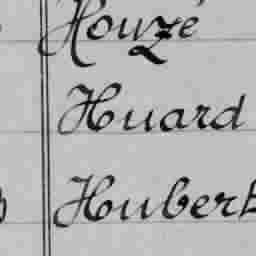 Houzé
Huard
Hubert